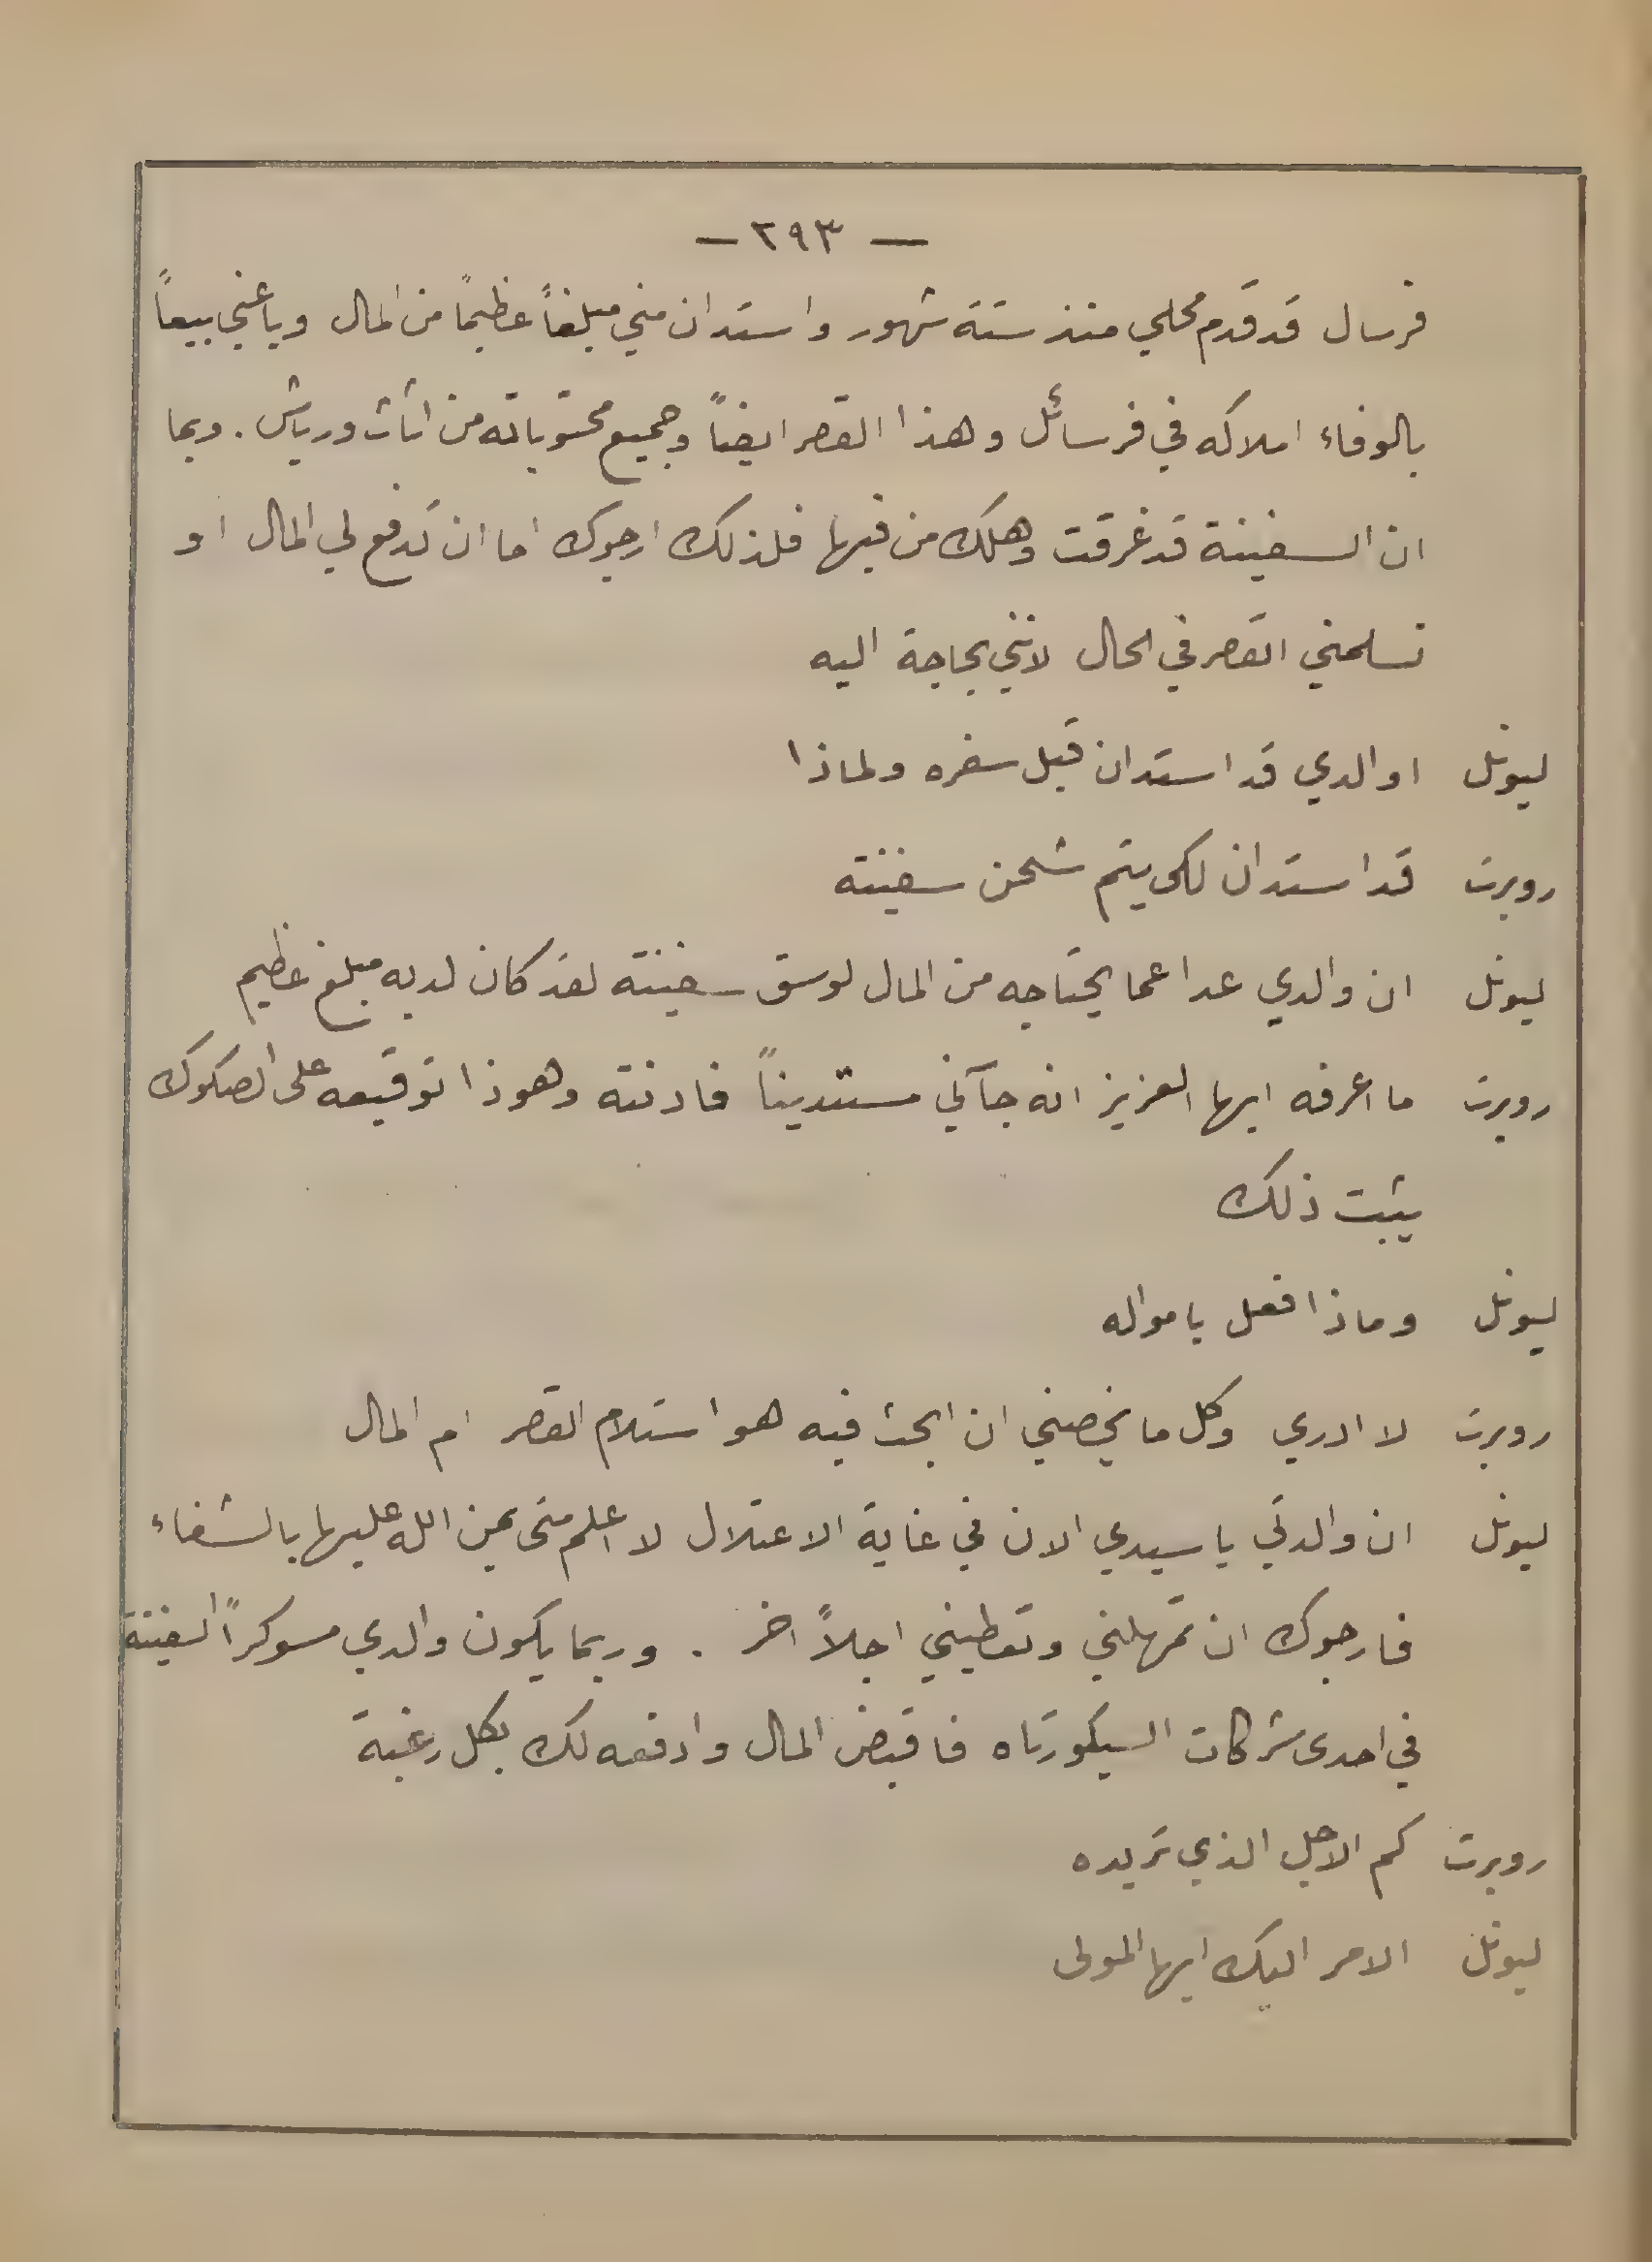 — ٢٩٣ —
فرسال قد قدم محلي منذ ستة شهور واستدان مني مبلغاً عظيماً من المال وباعني بيعاً
بالوفاء املاكه في فرسائل وهذا القصر ايضاً وجميع محتوياته من اثاث ورياش. وبما
ان السفينة قد غرقت وهلك من فيها فلذلك ارجوك اما ان تدفع لي المال او
تسلمني القصر في الحال لانني بحاجة اليه
ليونل اوالدي قد استدان قبل سفره ولماذا
روبرت قد استدان لكي يتم شحن سفينته
ليونل ان والدي عدا عما يحتاجه من المال لوسق سفينته لقد كان لديه مبلغ عظيم
روبرت ما اعرفه ايها العزيز انه جآني مستديناً فادنته وهوذا توقيعه على الصكوك
يثبت ذلك
ليونل وماذا فعل بامواله
روبرت لا ادري وكل ما يخصني ان ابحث فيه هو استلام القصر ام المال
ليونل ان والدتي يا سيدي الان في غاية الاعتلال لا اعلم متى يمن الله عليها بالشفاء
فارجوك ان تمهلني وتعطيني اجلاً اخر . وربما يكون والدي مسوكراً السفينة
في احدى شركات السيكورتاه فاقبض المال وادفعه لك بكل رغبة
روبرت كم الاجل الذي تريده
ليونل الامر اليك ايها المولى